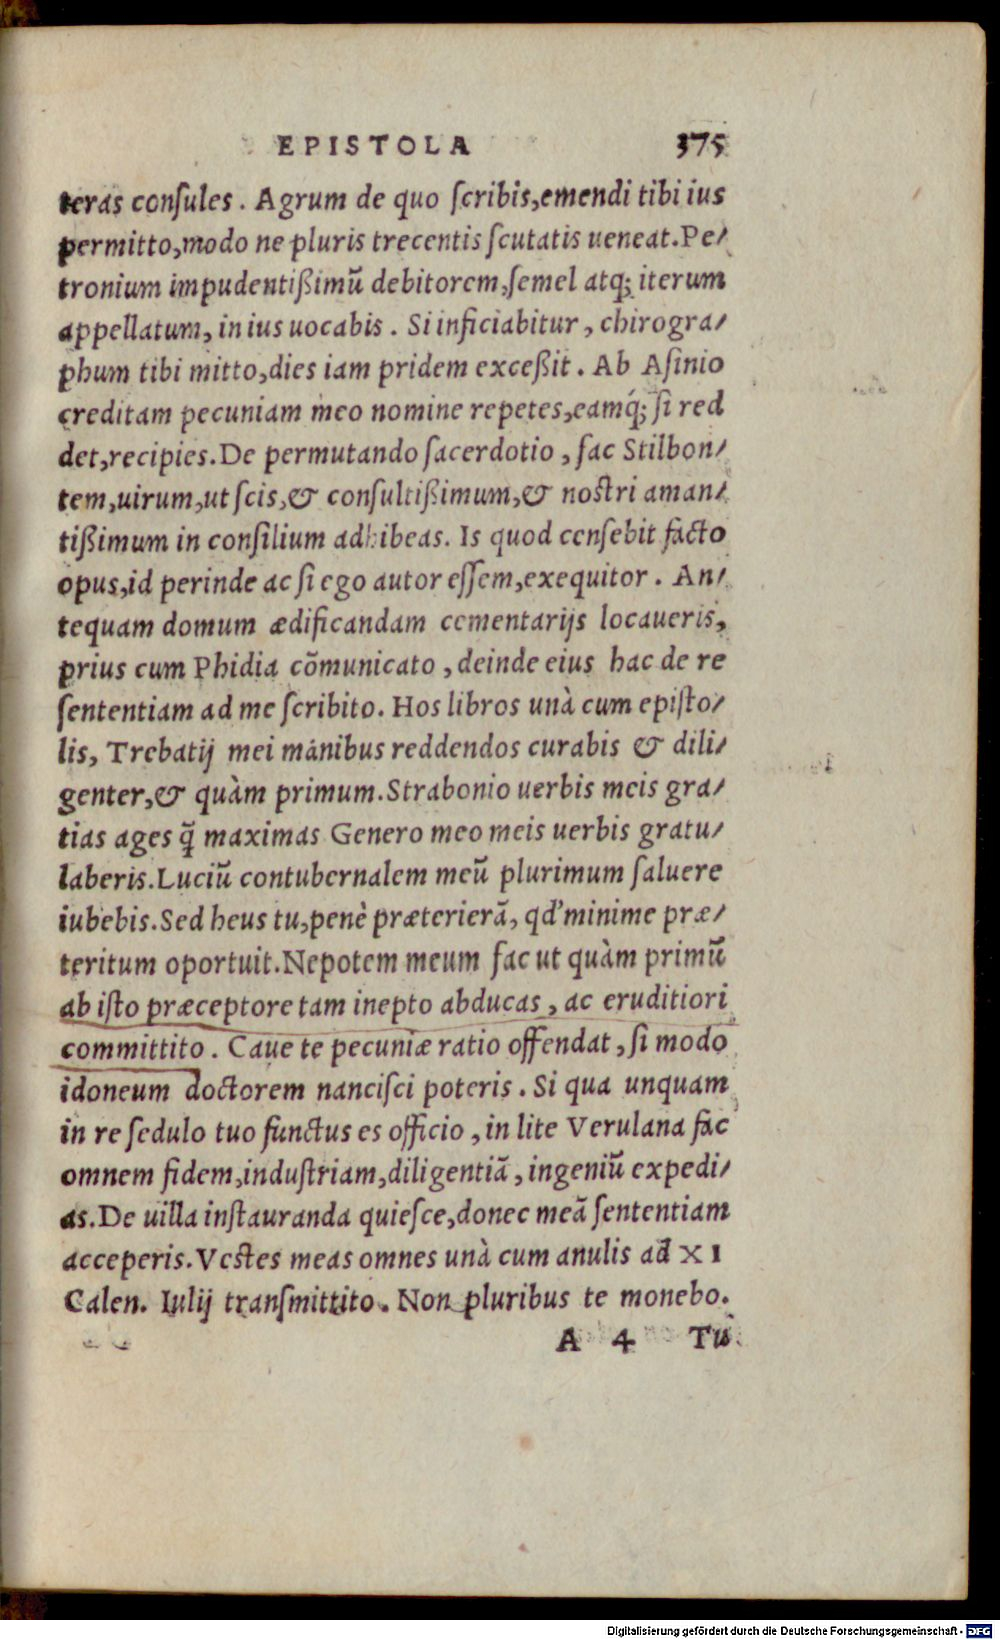 EPISTOLA 375
teras conſules. Agrum de quo ſcribis, emendi tibi ius
permitto, modo ne pluris trecentis ſcutatis ueneat. Pe⸗
tronium impudentißimū debitorem, ſemel atq; iterum
appellatum, in ius uocabis. Si inficiabitur, chirogra⸗
phum tibi mitto, dies iam pridem exceßit. Ab Aſinio
creditam pecuniam meo nomine repetes, eamq́; ſi red
det, recipies. De permutando ſacerdotio, fac Stilbon⸗
tem, uirum, ut ſcis, & conſultißimum, & noſtri aman⸗
tißimum in conſilium adhibeas. Is quod cenſebit facto
opus, id perinde ac ſi ego autor eſſem, exequitor. An⸗
tequam domum ædificandam cementarijs locaueris,
prius cum Phidia cōmunicato, deinde eius hac de re
ſententiam ad me ſcribito. Hos libros unà cum epiſto⸗
lis, Trebatij mei manibus reddendos curabis & dili⸗
genter, & quàm primum. Strabonio uerbis meis gra⸗
tias ages q̄ maximas Genero meo meis uerbis gratu⸗
laberis. Luciū contubernalem meū plurimum ſaluere
iubebis. Sed heus tu, penè præterierā, qđ minime præ⸗
teritum oportuit. Nepotem meum fac ut quàm primū
ab iſto præceptore tam inepto abducas, ac eruditiori
committito. Caue te pecuniæ ratio offendat, ſi modo
idoneum doctorem nanciſci poteris. Si qua unquam
in re ſedulo tuo functus es officio, in lite Verulana fac
omnem fidem, induſtriam, diligentiā, ingeniū expedi⸗
as. De uilla inſtauranda quieſce, donec meā ſententiam
acceperis. Veſtes meas omnes unà cum anulis ad XI
Calen. Iulij tranſmittito. Non pluribus te monebo.
A 4 Tu
Digitalisierung gefördert durch die Deutsche Forschungsgemeinschaft - DFG